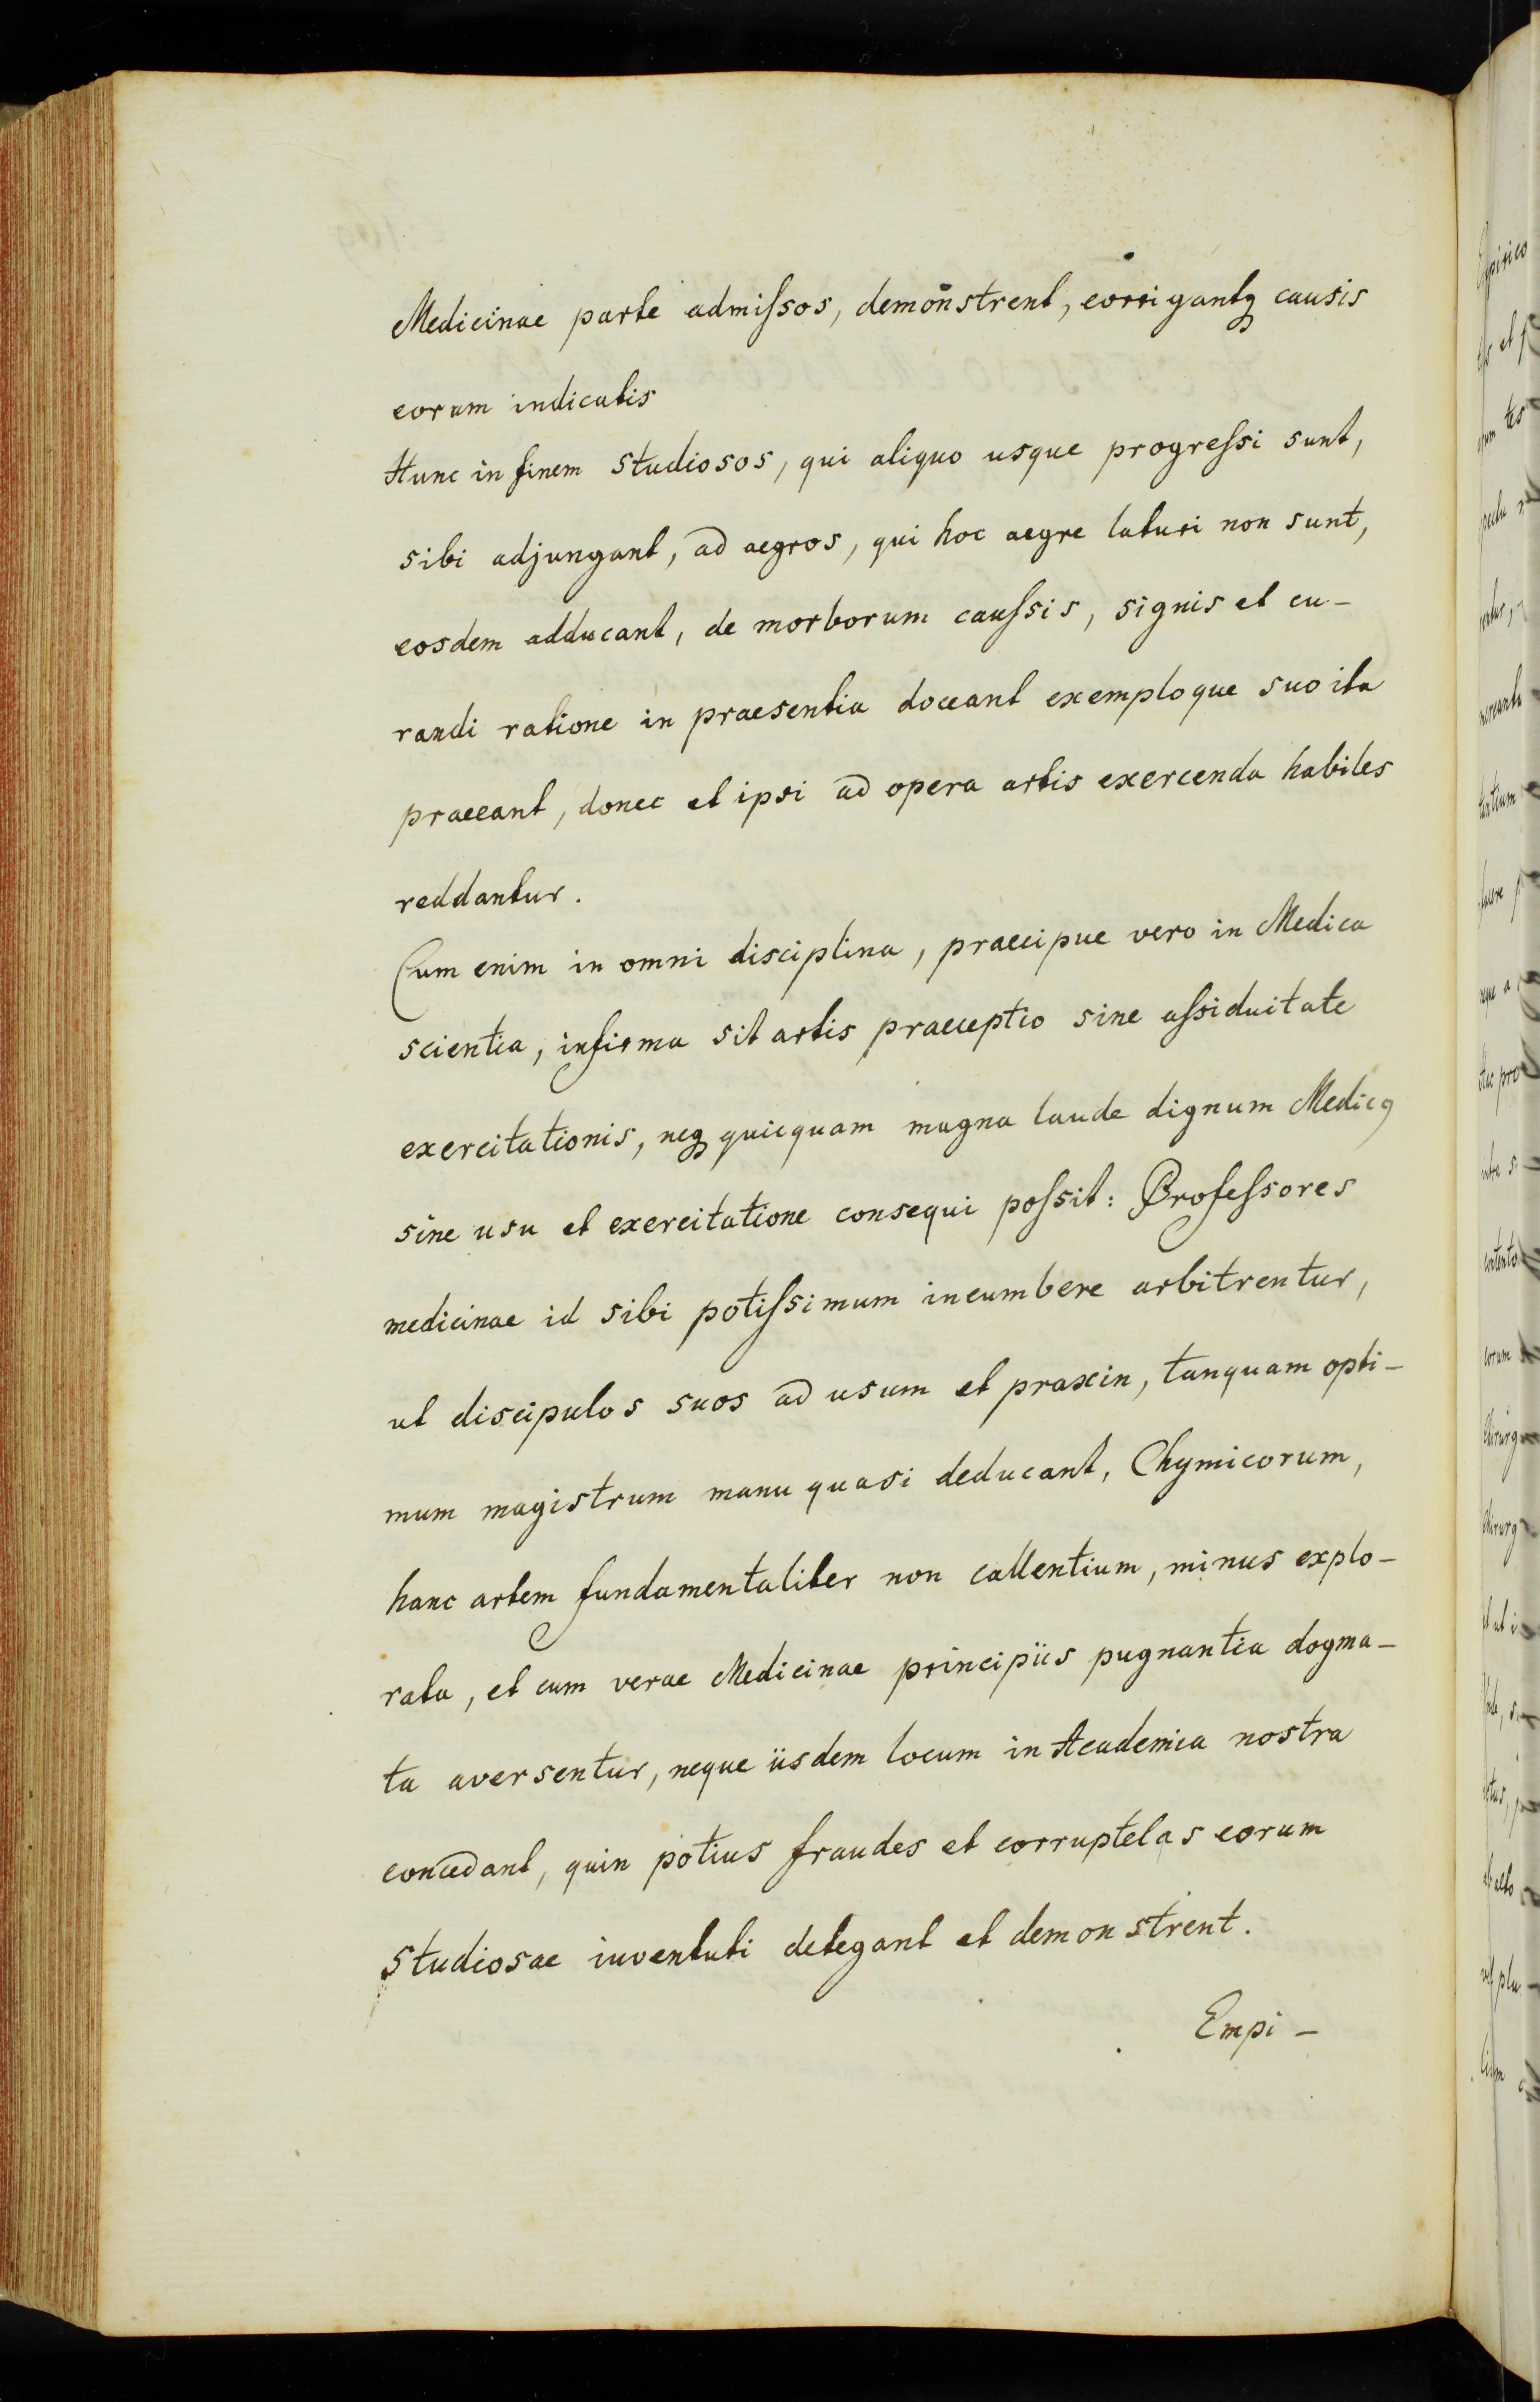 Medicinae parte admiſsos, demonstrent, corrigantq́ue causis
eorum indicatis
Hunc in finem studiosos, qui aliquo usque progreſsi sunt,
sibi adjungant, ad aegros, qui hoc aegre laturi non sunt,
eosdem adducant, de morborum cauſsis, signis et cu-
randi ratione in praesentia doceant exemploque suo ita
praeeant, donec et ipsi ad opera artis exercenda habiles
reddantur.
Cum enim in omni disciplina, praecipue vero in Medica
scientia, infirma sit artis praeceptio sine aſsiduitate
exercitationis, neq quicquam magna laude dignum Medicꝯ
sine usu et exercitatione consequi poſsit: Profeſsores
medicinae id sibi potiſsimum incumbere arbitrentur,
ut discipulos suos ad usum et praxin, tanquam opti-
mum magistrum manu quasi deducant, Chymicorum,
hanc artem fundamentaliter non callentium, minus explo-
rata, et cum verae Medicinae principiis pugnantia dogma-
ta aversentur, neque iisdem locum in Academia nostra
concedant, quin potius fraudes et corruptelas eorum
studiosae iuventuti detegant et demonstrent.
Empi-